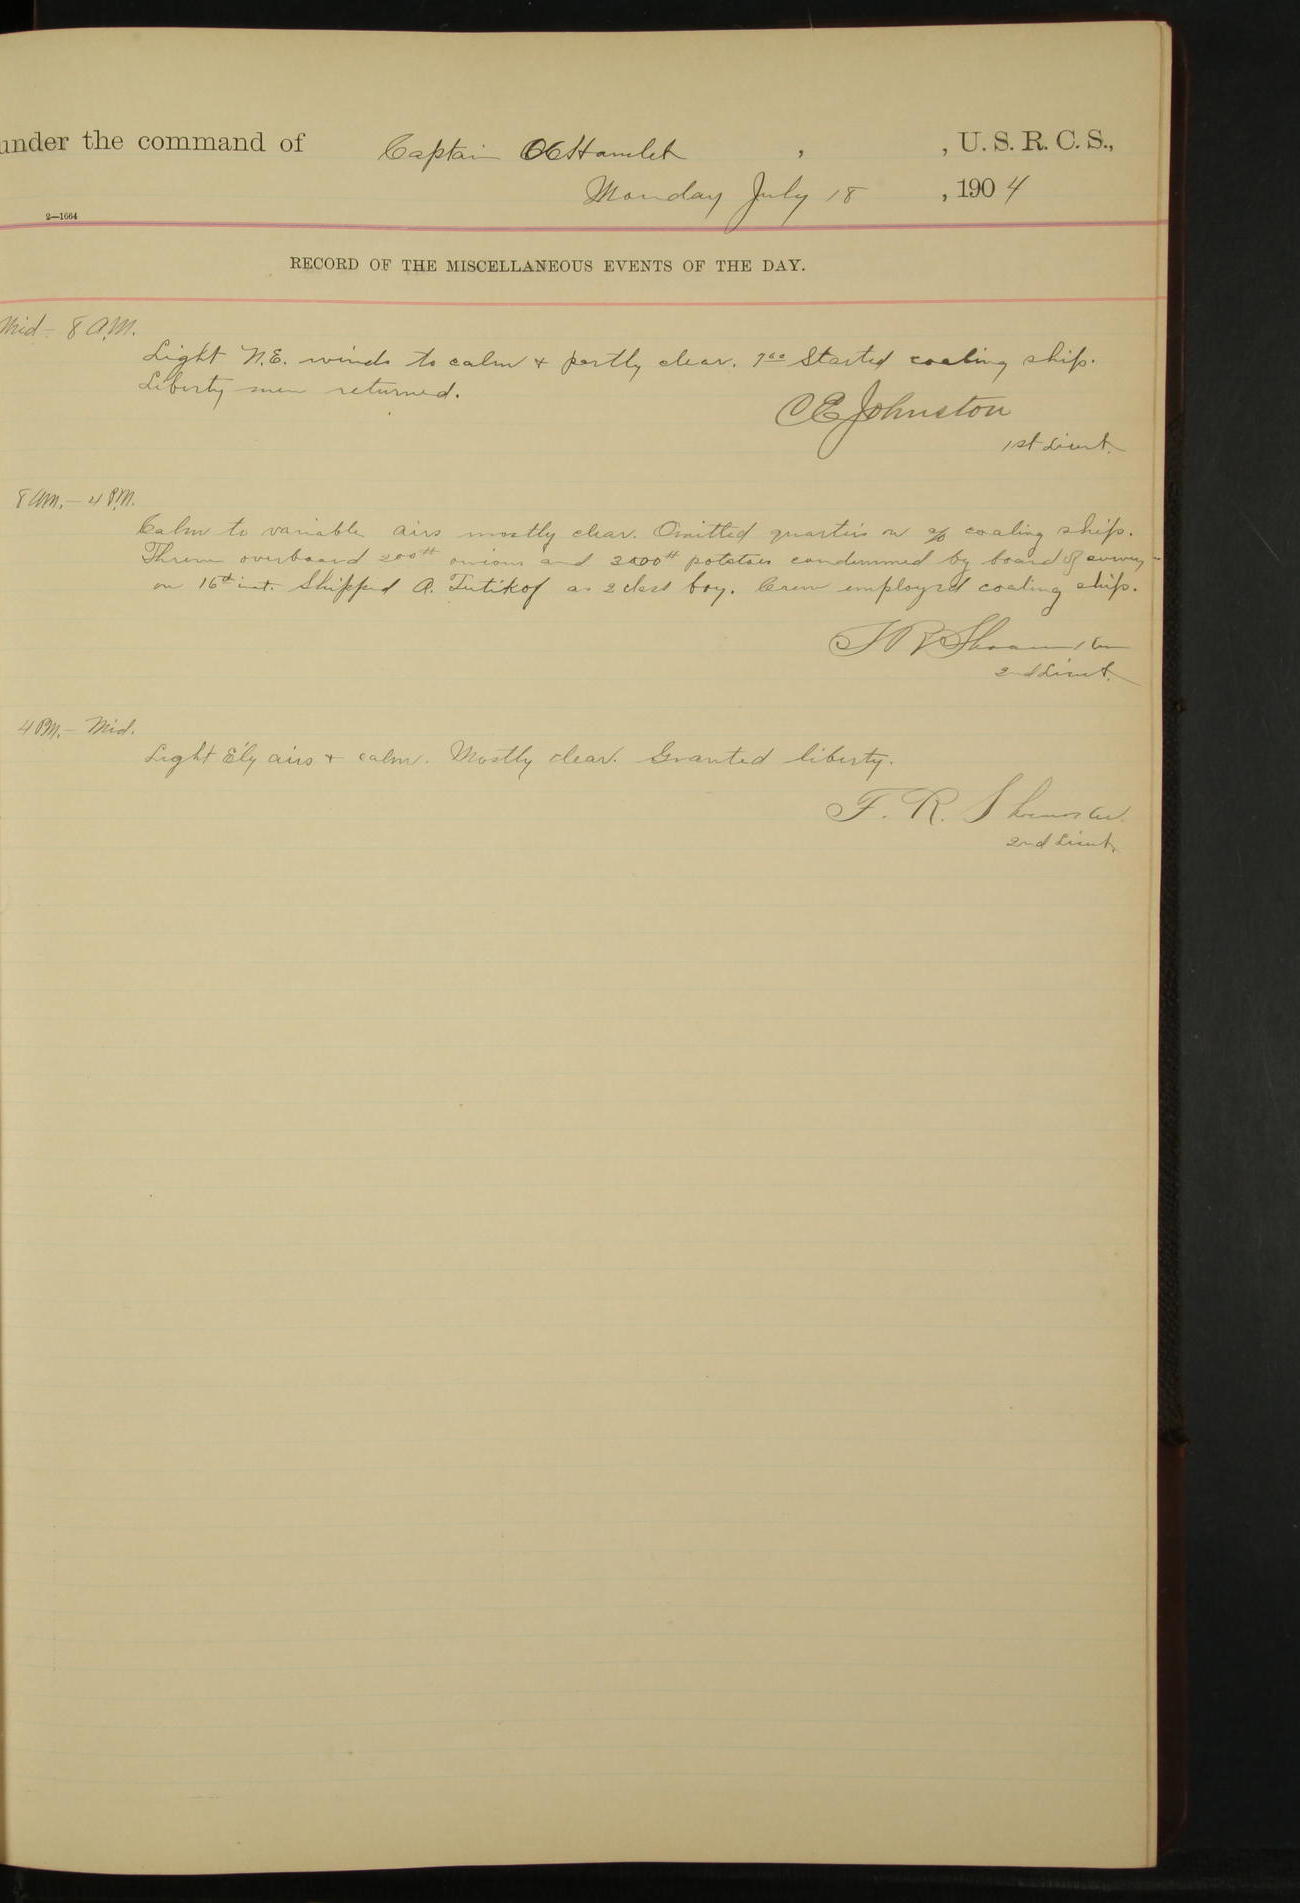 under the command of Captain OCHamlet , , U. S. R. C. S.,
Monday July 18 , 1904
2—1664
RECORD OF THE MISCELLANEOUS EVENTS OF THE DAY.
Mid - 8 A.M.
Light N.E. winds to calm + partly clear. 7 00 Started coaling ship.
Liberty men returned.
C E Johnston
1st Lieut.
8 AM. - 4 P.M.
Calm to variable airs mostly clear. Omitted quarters on coaling ship.
Threw overboard 200# onions and potatoes condemned by board of survey
on 16th inst. Shipped A. Tutikof as 2 class boy. Crew employed coaling ship.
F R
2nd Lieut.
4 PM. - Mid.
Light E'ly airs + calm. Mostly clear. Granted liberty.
F. R.
2nd Lieut.